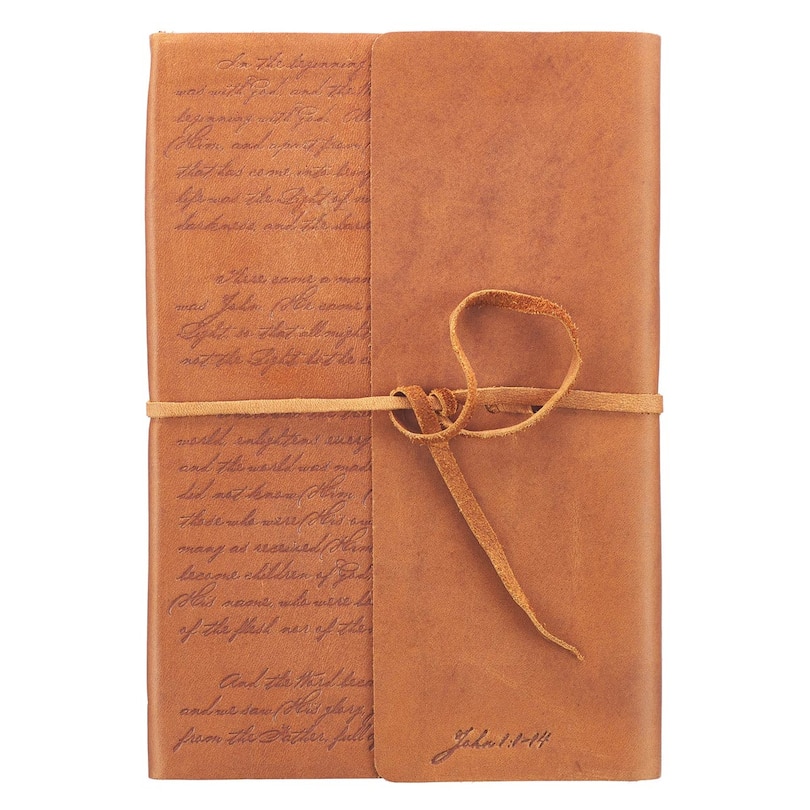 In the beginning
was with God, and the W
beginning with God. 
Him, and apart from
that has come into being
life was the Light of m
darkness, and the dark
There came a man
was John. He came
Light, so that all might
not the Light, but he c
world, enlightens every
and the world was made
did not know Him.
those who were His ow
many as received Him
become children of God,
His name, who were b
of the flesh nor of the
And the Word beca
and we saw His glory,
from the Father, full of
John 1:1-14